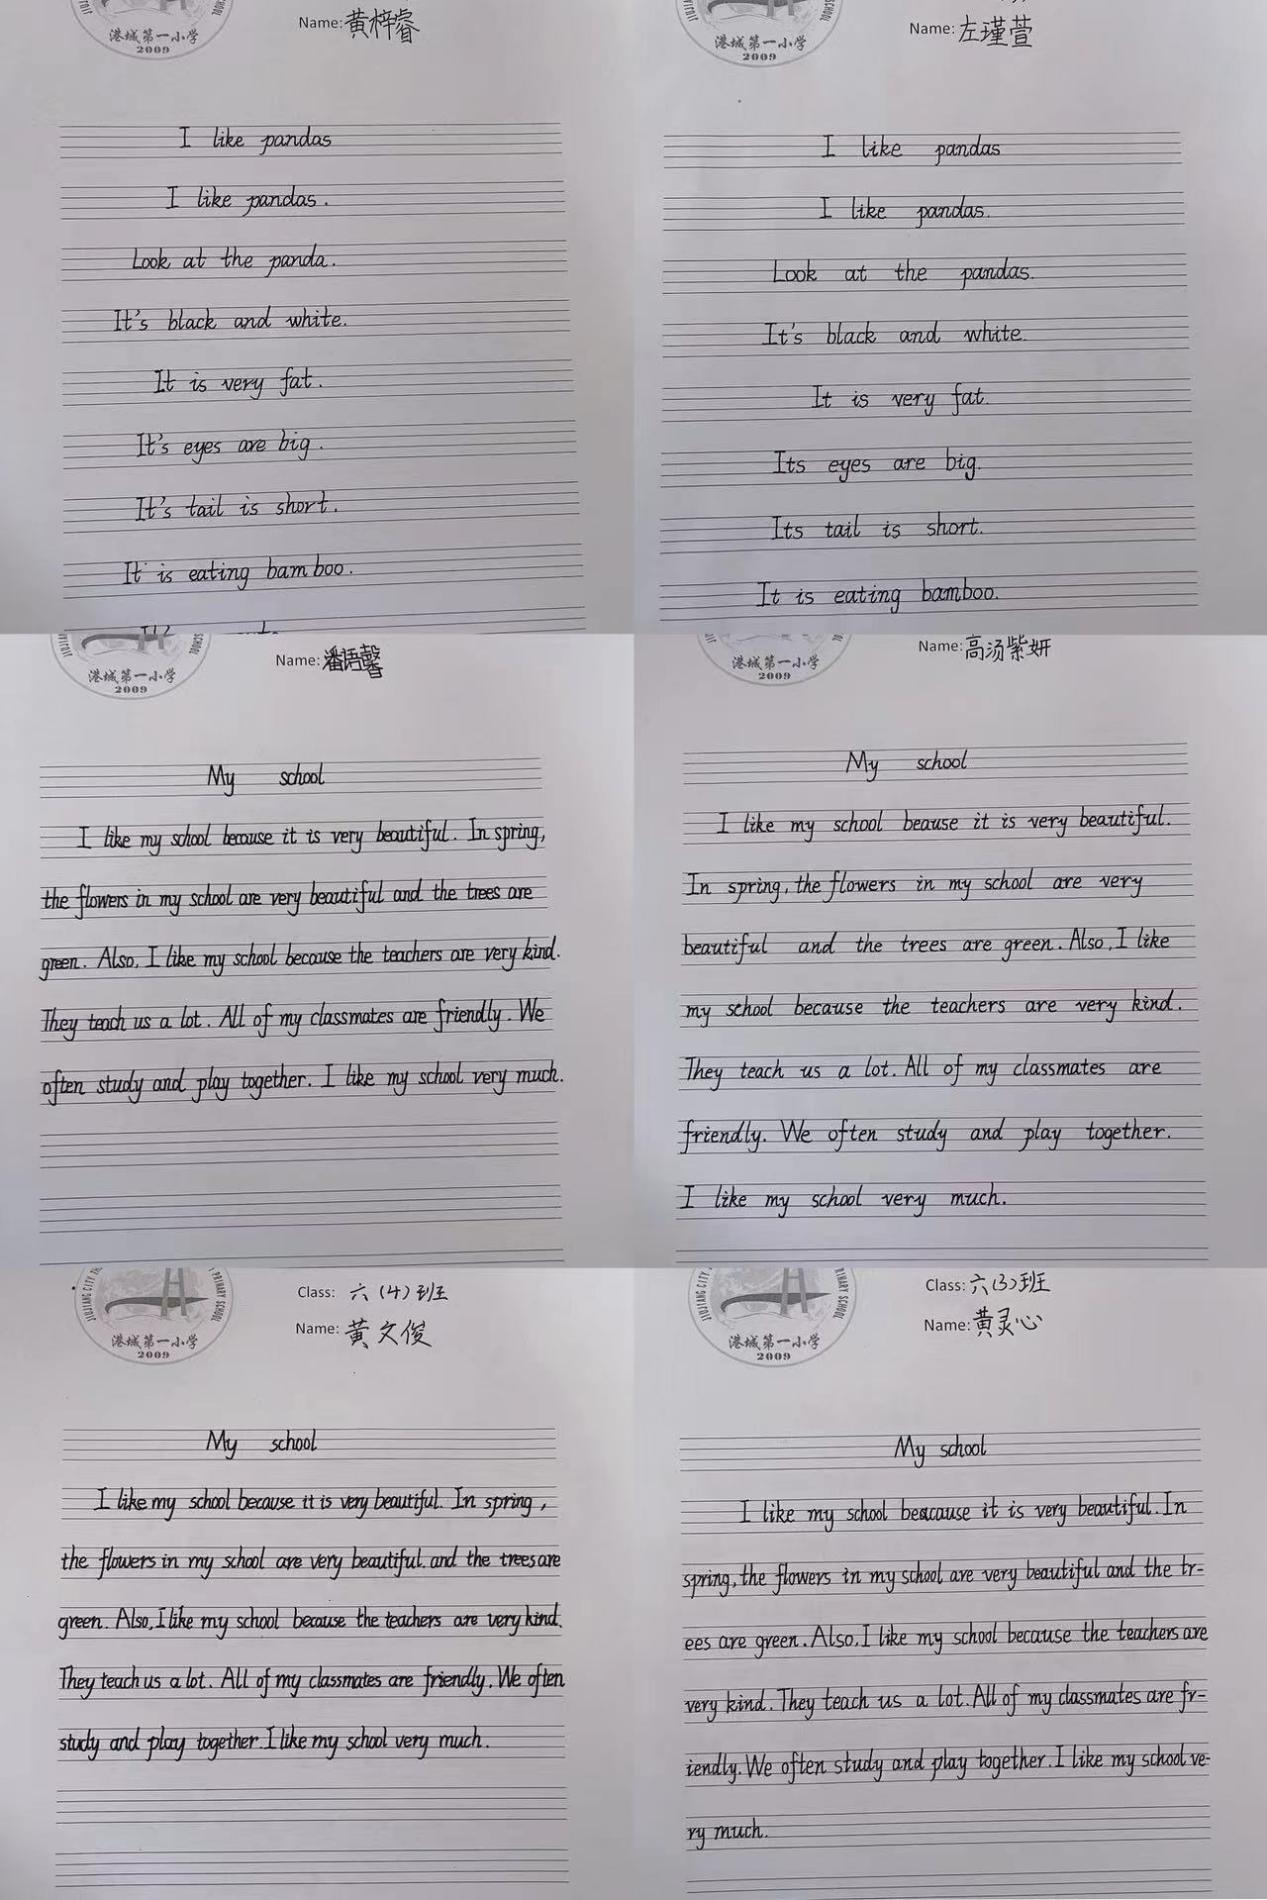 Name:黄梓睿
港城第一小学
2009
I like pandas
I like pandas.
Look at the panda.
It's black and white.
It is very fat.
It's eyes are big.
It's tail is short.
It is eating bamboo.
SCHOOL
Name:左瑾萱
港城第一小学
2009
I like pandas
I like pandas.
Look at the pandas.
It's black and white.
It is very fat.
Its eyes are big.
Its tail is short.
It is eating bamboo.
SCHOOL
Name:潘语馨
港城第一小学
2009
My school
I like my school because it is very beautiful. In spring,
the flowers in my school are very beautiful and the trees are
green. Also, I like my school because the teachers are very kind.
They teach us a lot. All of my classmates are friendly. We
often study and play together. I like my school very much.
Name:高汤紫妍
港城第一小学
2009
My school
I like my school beause it is very beautiful.
In spring, the flowers in my school are very
beautiful and the trees are green. Also, I like
my school because the teachers are very kind.
They teach us a lot. All of my classmates are
friendly. We often study and play together.
I like my school very much.
PRIMARY SCHOOL
Class: 六(4)班
Name:黄文俊
港城第一小学
2009
My school
I like my school because it is very beautiful. In spring,
the flowers in my school are very beautiful and the trees are
green. Also, I like my school because the teachers are very kind.
They teach us a lot. All of my classmates are friendly. We often
study and play together. I like my school very much.
Class:六(3)班
Name:黄灵心
港城第一小学
2009
My school
I like my school beacause it is very beautiful. In
spring, the flowers in my school are very beautiful and the tr-
ees are green. Also, I like my school because the teachers are
very kind. They teach us a lot. All of my classmates are fr-
iendly. We often study and play together. I like my school ve-
ry much.